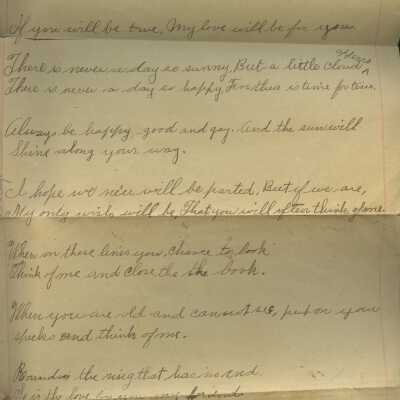 If you will be true, My love will be for you
There is never a day so sunny, But a little cloud
There is never a day so happy For thea is time for tears.
Always be happy good and gay. And the sun will
Shine along your way.
I hope we neer will be parted, But if we are,
My only wish will be That you will often think of me.
When on these lines you, chance to look
Think of me and close the the book.
When you are old and cannot see, put on your
specks and think of me.
Round is the ring that has no end
is the love you my friend